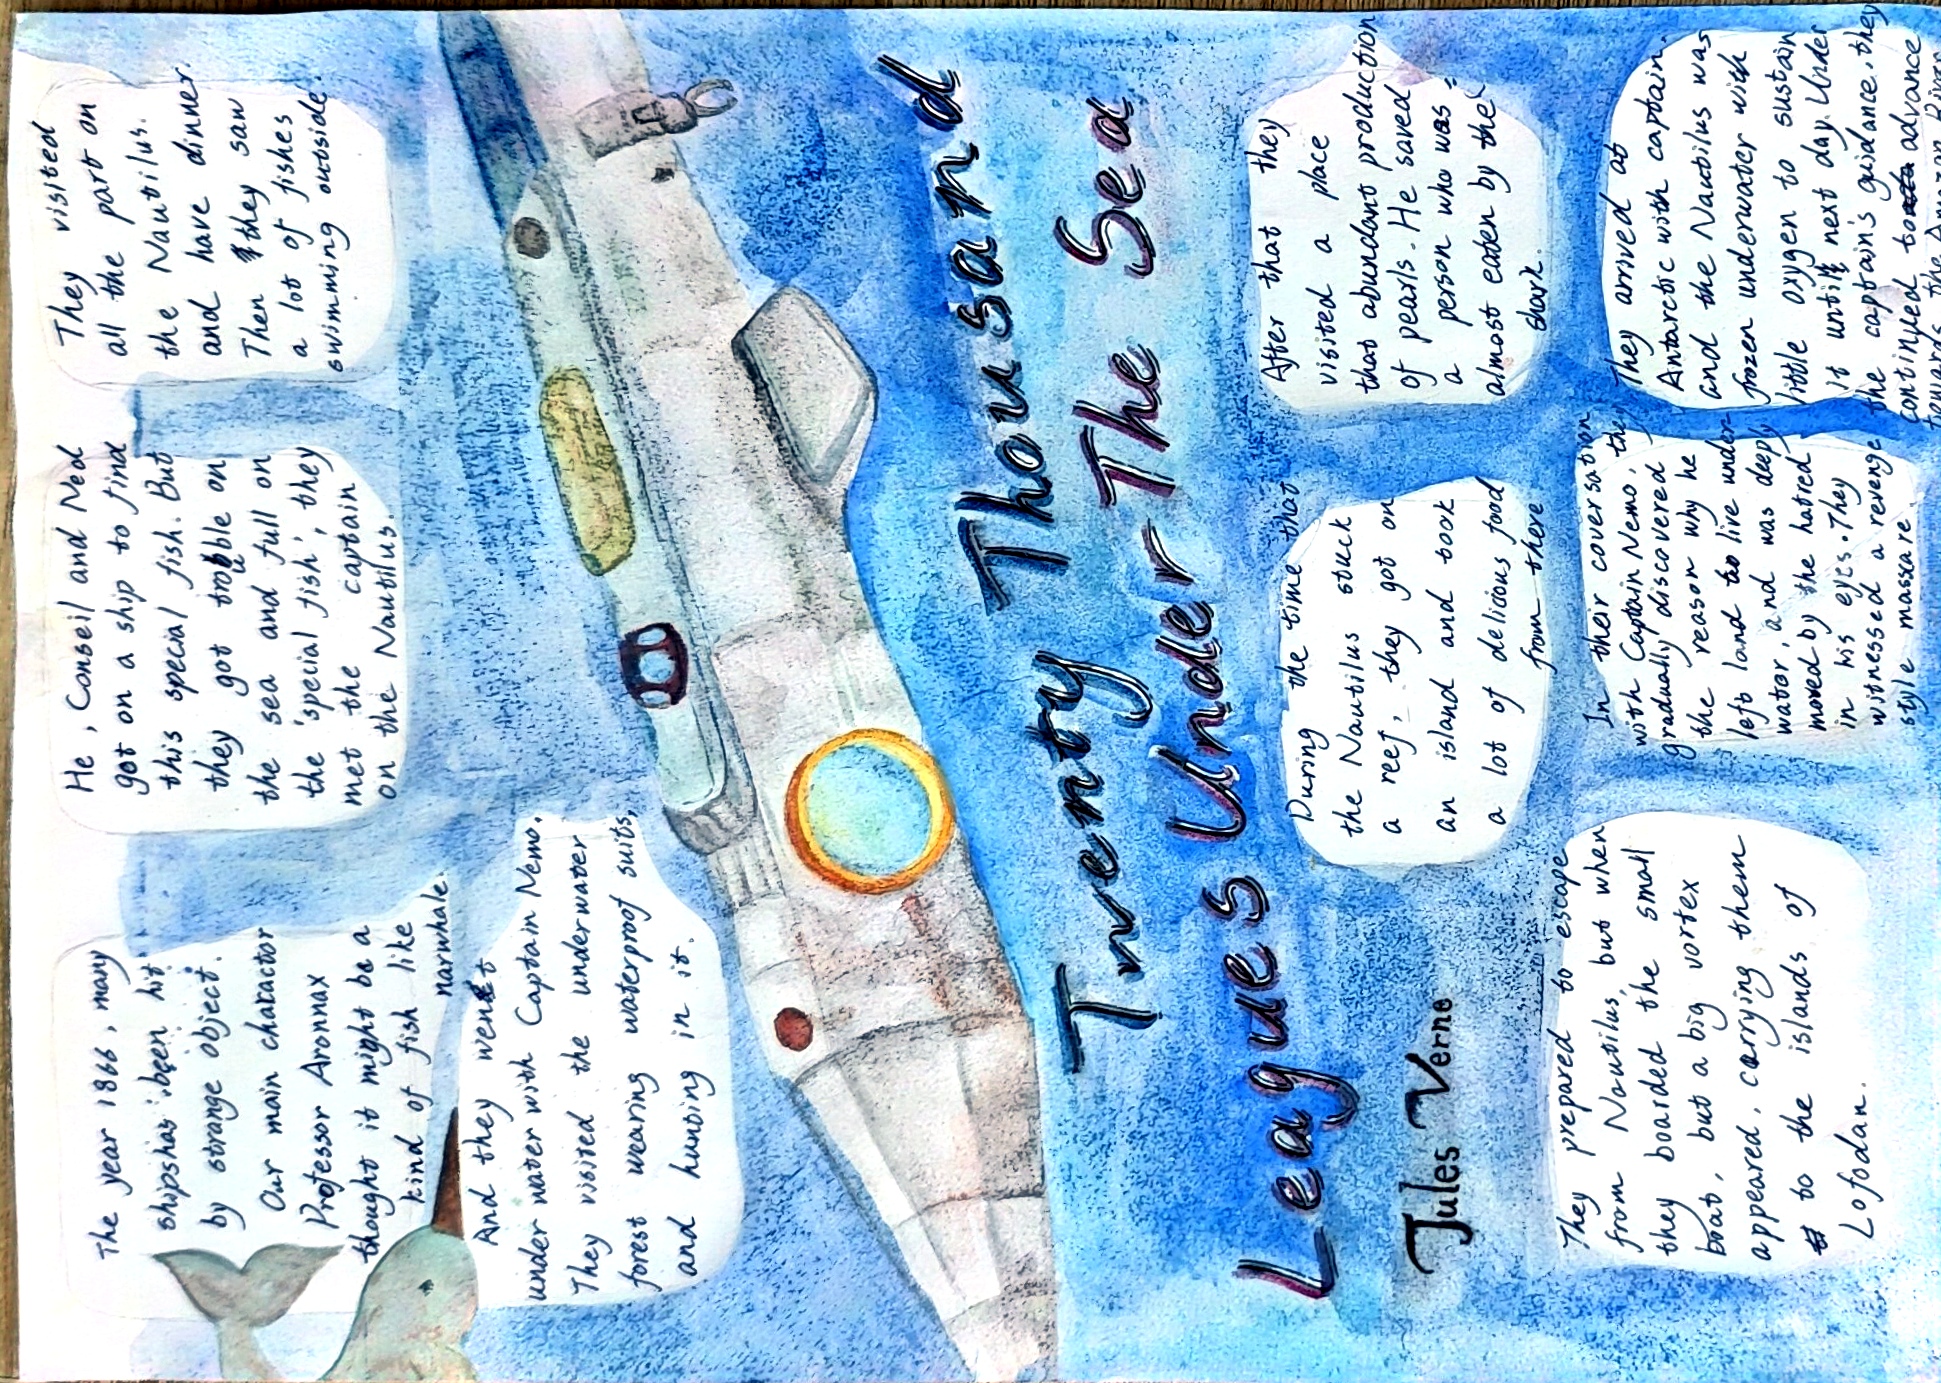 The year 1866, many
shipshas been hit
by strange object.
Our main charactor
Professor Aronnax
thought it might be a
kind of fish like
narwhale.
He, Conseil and Ned
got on a ship to find
this special fish. But
they got trouble on
the sea and full on
the 'special fish', they
met the captain
on the Nautilus.
They visited
all the part on
the Nautilus.
and have dinner.
Then they saw
a lot of fishes
swimming outside.
And they went
under water with Captain Nemo.
They visited the underwater
forest wearing waterproof suits,
and hunting in it.
Twenty Thousand
Leagues Under The Sea
Jules Verne
During the time that
the Nautilus stuck
a reef, they got on
an island and took
a lot of delicious food
from there
After that they
visited a place
that abundant production
of pearls. He saved
a person who was
almost eaten by the
shark.
They arrived at
Antarctic with captain,
and the Nautilus was
frozen underwater with
little oxygen to sustain
it until next day. Under
the captain's guidance, they
continued to advance
towards the Amazon River
In their coversation
with Captain Nemo, they
gradually discovered
the reason why he
left land to live under-
water, and was deeply
moved by the hatred
in his eyes. They
witnessed a revenge
style massxare.
They prepared to escape
from Nautilus, but when
they boarded the small
boat, but a big vortex
appeared, carrying them
to the islands of
Lofodan.